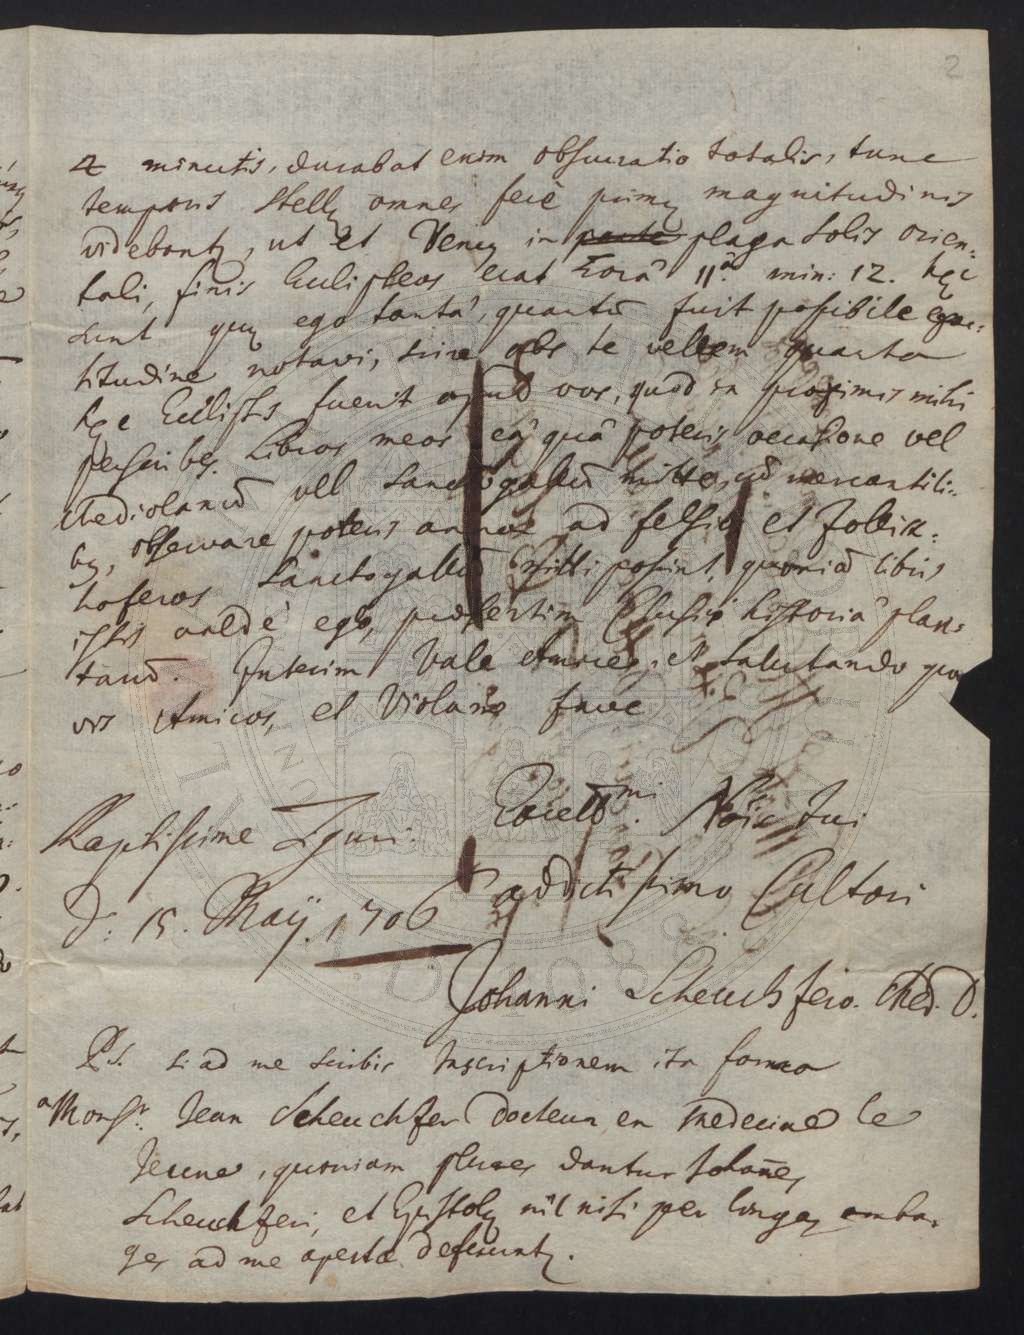 2
4 minutis, durabat enim obscuratio totalis, tunc
temporis Stellę omnes ferè primę magnitudinis
videbantʒ, ut et Venus in parte plaga Solis orien-
tali, finis Eclipseos erat horâ 11ª. min: 12. hęc
sunt quę ego tantâ, quantũ fuit possibile exac-
titudine notavi, scire abs te vellem quanta
hęc Eclipsis fuerit apud vos, quod in proximis mihi
perscribes. Libros meos eâ quâ poteris occasione vel
Mediolanũ vel Sanctogallũ mitte, ut mercantili-
bʒ, observare poteris ad et Zollik-
hoferos Sanctogallũ mitti possint, quoniã libris
istis valdè egeo, præsertim Clusij historiâ plan-
tarũ. Interim Vale Amice, et salutando quos-
vis Amicos, et fave
Excellmi. Nõis Tui
Raptissime Tiguri.
addictissimo Cultori
d: 15. Maij. 1706
Johanni Scheuchzero. Med. D.
P.S. si ad me scribis Inscriptionem ita forma
a Monsr. Jean Scheuchzer Docteur en Medecine le
Jeune, quoniam plures dantur Johañes
Scheuchzeri, et Epistolę nil nisi per longas amba-
ges ad me apertæ deferuntʒ.